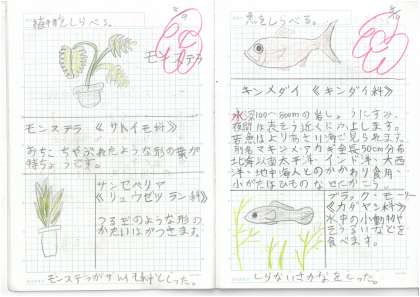 植物をしらべる。
モンステラ
モンステラ《サトイモ科》
おちこちやぶれたような形の葉が
特ちょうです。
サンセベリア
《リュウゼツラン科》
つるぎのような形の
かたいはがつきます。
モンステラがサトイモ科としった。
魚をしらべる。
キンメダイ《キンダイ科》
水深100~800mの岩しょうにすみ、
夜間は表そう近くに上します。
全長50cm分布
北海以南太平洋・インド洋・大西
洋・地中海人とのかかわり食用・
小がたはひものなどにかこう。
ブラック・モーリー
《カダヤシ科》
水中の小動物や
そうるいなどを
食べます。
しらないさかなをしった。